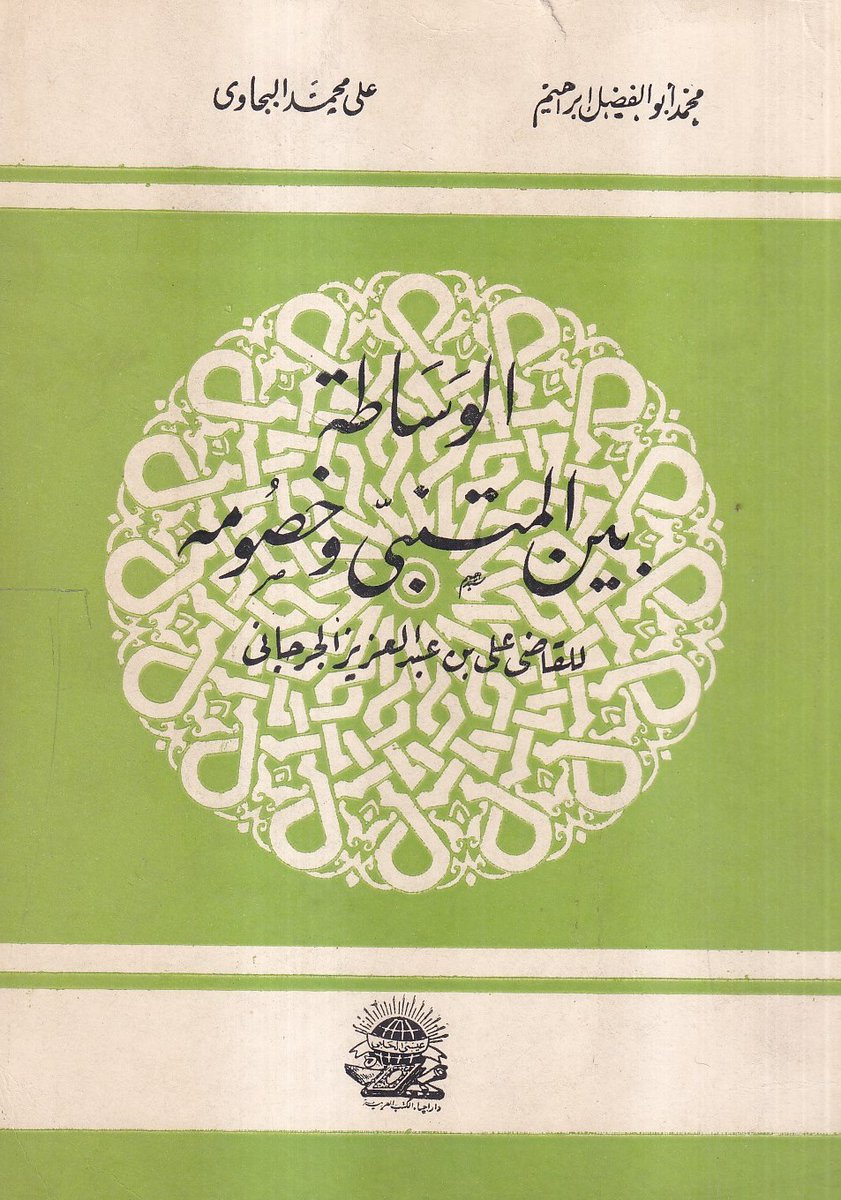 محمد أبو الفضل إبراهيم
علي محمد البجاوي
الوَسَاطة
بين المتنبّي وخصُومه
للقاضي علي بن عبد العزيز الجرجاني
عيسى الحلبي
دار إحياء الكتب العربية